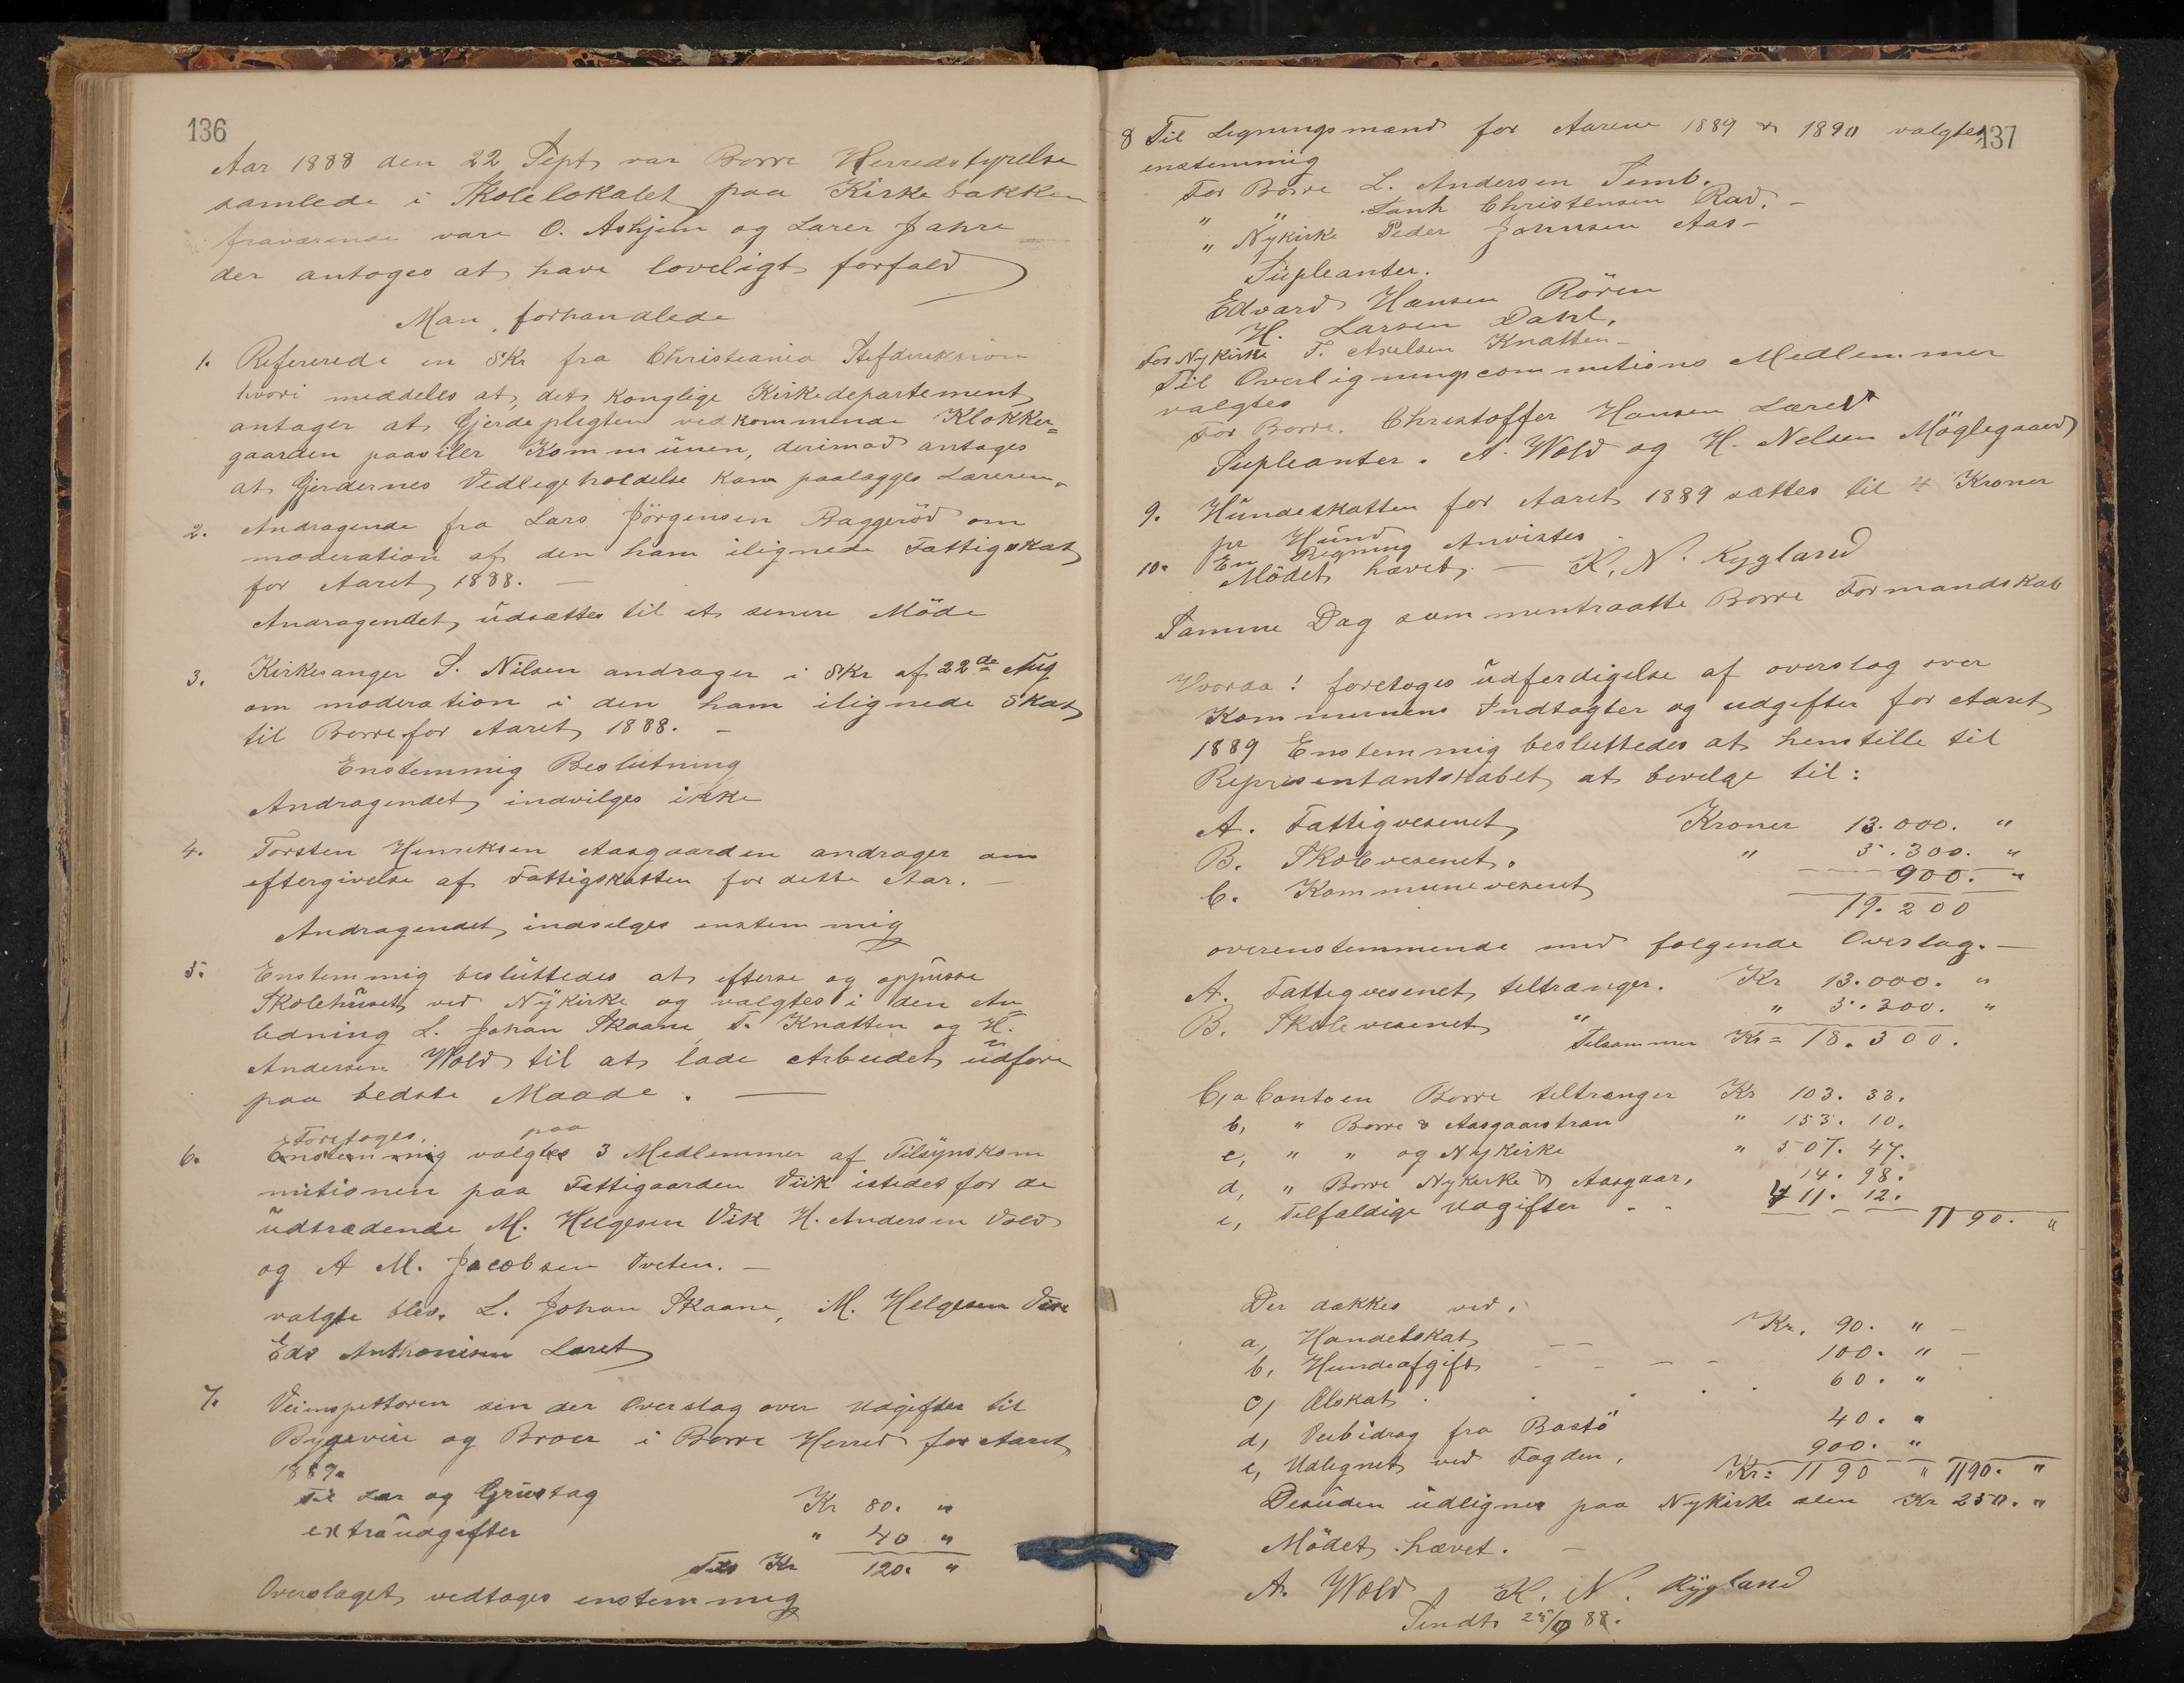 136
Aar 1888 den 22 Sept var Borre Herredstyrelse
samlede i Skolelokalet paa Kirkebakken
fraværende vare O. Ashjem og Lærer Jahre
der antoges at have loveligt forfald
Man forhandlede
1. Refererede en Skr fra Christiania Stifdireksion
hvori meddeles at det konglige Kirkedepartement
antager at Gjerdepligten vedkommende Klokker=
gaarden paaviler Kommunen, derimod antages
at Gjerdernes Vedligeholdelse kan paalægges Læreren.
2. Andragende fra Lars Jörgensen Baggeröd om
moderation af den ham ilignede Fattigskat
for Aaret 1888. —
Andragendet udsættes til et senere Möde
3. Kirkesanger S. Nilsen andrager i Skr af 22de Aug
om moderation i den ham ilignede Skat
til Borre for Aaret 1888. –
Enstemmig Beslutning
Andragendet indvilges ikke
4. Torsten Henriksen Aasgaarden andrager om
eftergivelse af Fattigskatten for dette Aar. —
Andragendet indvilges enstemmig
5. Enstemmig besluttedes at efterse og oppusse
Skolehuset ved Nykirke og valgtes i den An=
ledning L. Johan Skaane, T. Knatten og H.
Andersen Wold til at lade Arbeidet udföre
paa bedste Maade. —
Foretoges paa
6. Enstemmig valgtes 3 Medlemmer af Tilsynskom
mitionen paa Fattigaarden Viik istedet for de
udtrædende M. Helgesen Vik H. Andersen Vold
og A M. Jacobsen Tveten. —
valgte blev. L. Johan Skaane, M. Helgesen Vik
Edv Anthonisen Læret
7. Veiinspektøren sin der Overslag over Udgifter til
Bygeveie og Broer i Borre Herred for Aaret
1889.
Til Ler og Grustag Kr 80. "
extraudgifter " 40 "
Tils Kr 120. "
Overslaget vedtages enstemmig
137
8 Til Ligningsmænd for Aarene 1889 & 1890 valgtes
enstemmig
For Borre L. Andersen Semb.
" " Lauh Christensen Rød. –
" Nykirke Peder Johnsen Aas –
Supleanter.
Edvard Hansen Rören
H. Larsen Dahl.
For Nykirke T. Axelsen Knatten –
Til Overligningscommitions Medlemmer
valgtes
For Borre. Christoffer Hansen Læret
Supleanter. A. Wold og H. Nelsen Möglegaard
9. Hundeskatten for Aaret 1889 sættes til 4 Kroner
pr Hund
10. En Regning Anvistes
Mödet hævet. — K. N. Rygland
Samme Dag sammentraatte Borre Formandskab
Hvoraa! foretoges udferdigelse af overslag over
Kommunens Indtægter og udgifter for Aaret
1889 Enstemmig besluttedes at henstille til
Representantskabet at bevilge til:
A. Fattigvesenet Kroner 13.000. "
B. Skolevesenet. " 5.300. "
C. Kommunevesenet 900. "
19.200
overenstemmende med følgende Overslag. —
A. Fattigvesenet tiltrænger. Kr 13.000. "
B. Skolevesenet " " 5.300. "
Tilsammen Kr = 18.300.
C, a Contoen Borre tiltrænger Kr 103. 33.
b, " Borre & Aasgaarstran " 153. 10.
c, " " og Nykirke " 507. 47.
d, " Borre Nykirke & Aasgaar. 14. 98.
e, Tilfældige udgifter - - 411. 12.
1190. "
Der dækkes ved.
a, Handelskat — — Kr. 90. " –
b, Hundeafgift – – – – 100. " –
c, Ølskat . . . . 60. "
d, Veibidrag fra Bastö 40. "
e, Udlignet ved Fogden. 900. "
Kr = 1190 " 1190. "
Desuden udlignes paa Nykirke alen Kr 250. "
Mödet hævet. —
A. Wold K. N. Rygland
Sendt 25/9 88.